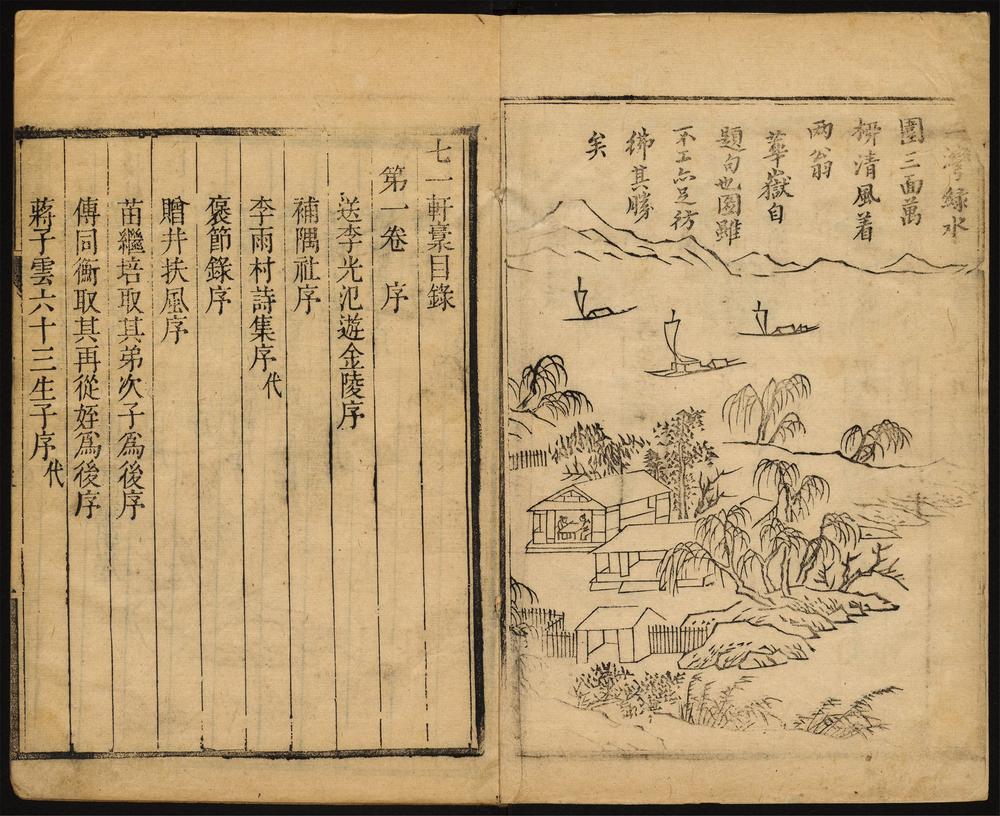 一灣綠水
圍三面萬
柳清風着
兩翁
華嶽自
題句也圖雖
不工亦足彷
彿其勝
矣
七一軒藁目錄
第一卷 序
送李光氾遊金陵序
補隅社序
李雨村詩集序代
褒節錄序
贈井扶風序
苗繼培取其弟次子爲後序
傳同衡取其再從姪爲後序
蔣子雲六十三生子序代